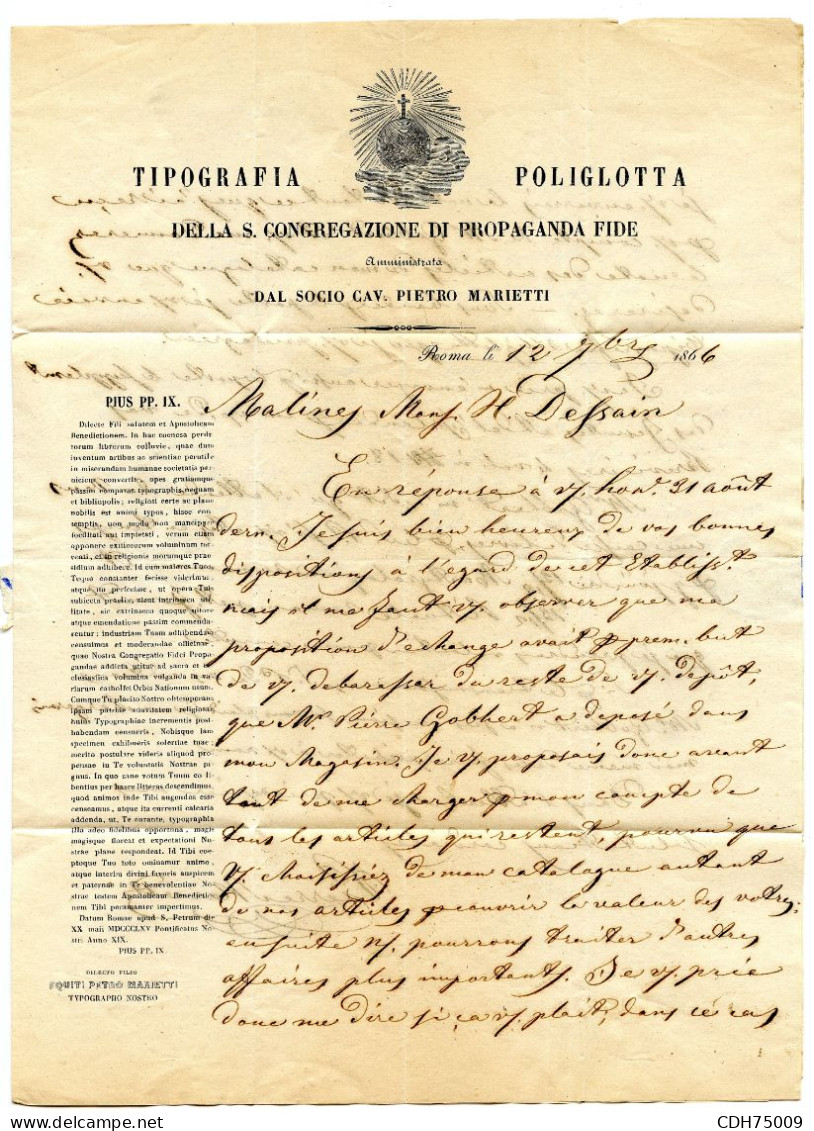 TIPOGRAFIA POLIGLOTTA
DELLA S. CONGREGAZIONE DI PROPAGANDA FIDE
Amministrata
DAL SOCIO CAV. PIETRO MARIETTI
Roma le 12 7bre 1866
PIUS PP. IX.
Dilecte Fili salutem et Apostolicam
Benedictionem. In hac congesta perditorum
librorum colluvie, quae dum
inventum artibus ac scientiae perutile
in miserandam humanae societatis perniciem
convertis, opes gratiamque
passim comparat typographis nequam
et bibliopolis; religiosi certe ac plane
nobilis est animi typos, hisce
contemptis, non modo non mancipare
foeditati aut impietati, verum etiam
opponere exitiosorum voluminum
et in religionis morumque praesidium
adhibere. Id cum maiores Tuos,
Teque constanter fecisse viderimus,
atque ita perfecisse, ut opera Tuis
subiecta praelis, sicut intrinseca
utilitate, sic extrinseco quoque nitore
atque emendatione passim commendarentur;
industriam Tuam adhibendam
censuimus et moderandae officinae,
quae Nostra Congregatio Fidei Propagandae
addicta utitur ad sacra et ecclesiastica
volumina vulganda in variarum
catholici Orbis Nationum usum.
Cumque Tu placito Nostro obtemperans
ipsam patriae suavitatem religiosae
huius Typographiae incrementis posthabendam
censueris, Nobisque iam
specimen exhibueris solertiae tuae,
merito postulare videris aliquod propensae
in Te voluntatis Nostrae pignus.
In quo sane votum Tuum eo libentius
per hasce litteras descendimus,
quod animos inde Tibi augendos esse
censeamus, atque ita currenti calcaria
addenda, ut, Te curante, typographia
illa adeo fidelibus opportuna, magis
magisque floreat et expectationi Nostrae
plane respondeat. Id Tibi coeptoque
Tuo toto ominamur animo,
atque interim divini favoris auspicem
et paternae in Te benevolentiae Nostrae
testem Apostolicam Benedictionem
Tibi peramanter impertimus.
Datum Romae apud S. Petrum die
XX maii MDCCCLXV Pontificatus Nostri
Anno XIX.
PIUS PP. IX.
DILECTO FILIO
EQUITI PETRO MARIETTI
TYPOGRAPHO NOSTRO
Malines Mons. H. Dessain
En réponse à v/. hon. 31 août
dern. Je suis bien heureux de vos bonnes
dispositions à l'égard de cet Etablisst.
mais il me faut v/. observer que ma
proposition d'echange avait p prem. but
de v/. debarasser du reste de v/. depôt,
que Mr. Pierre Gobhert a deposé dans
mon Magasin. Je v/. proposais donc avant
tout de me charger p mon compte de
tous les articles qui restent, pourvu que
v/. choisissiez de mon catalogue autant
de nos articles p couvrir la valeur des votres:
ensuite n/. pourrons traiter d'autres
affaires plus importants. Je v/. prie
donc me dire si ça v/. plait, dans ce cas
CDH75009